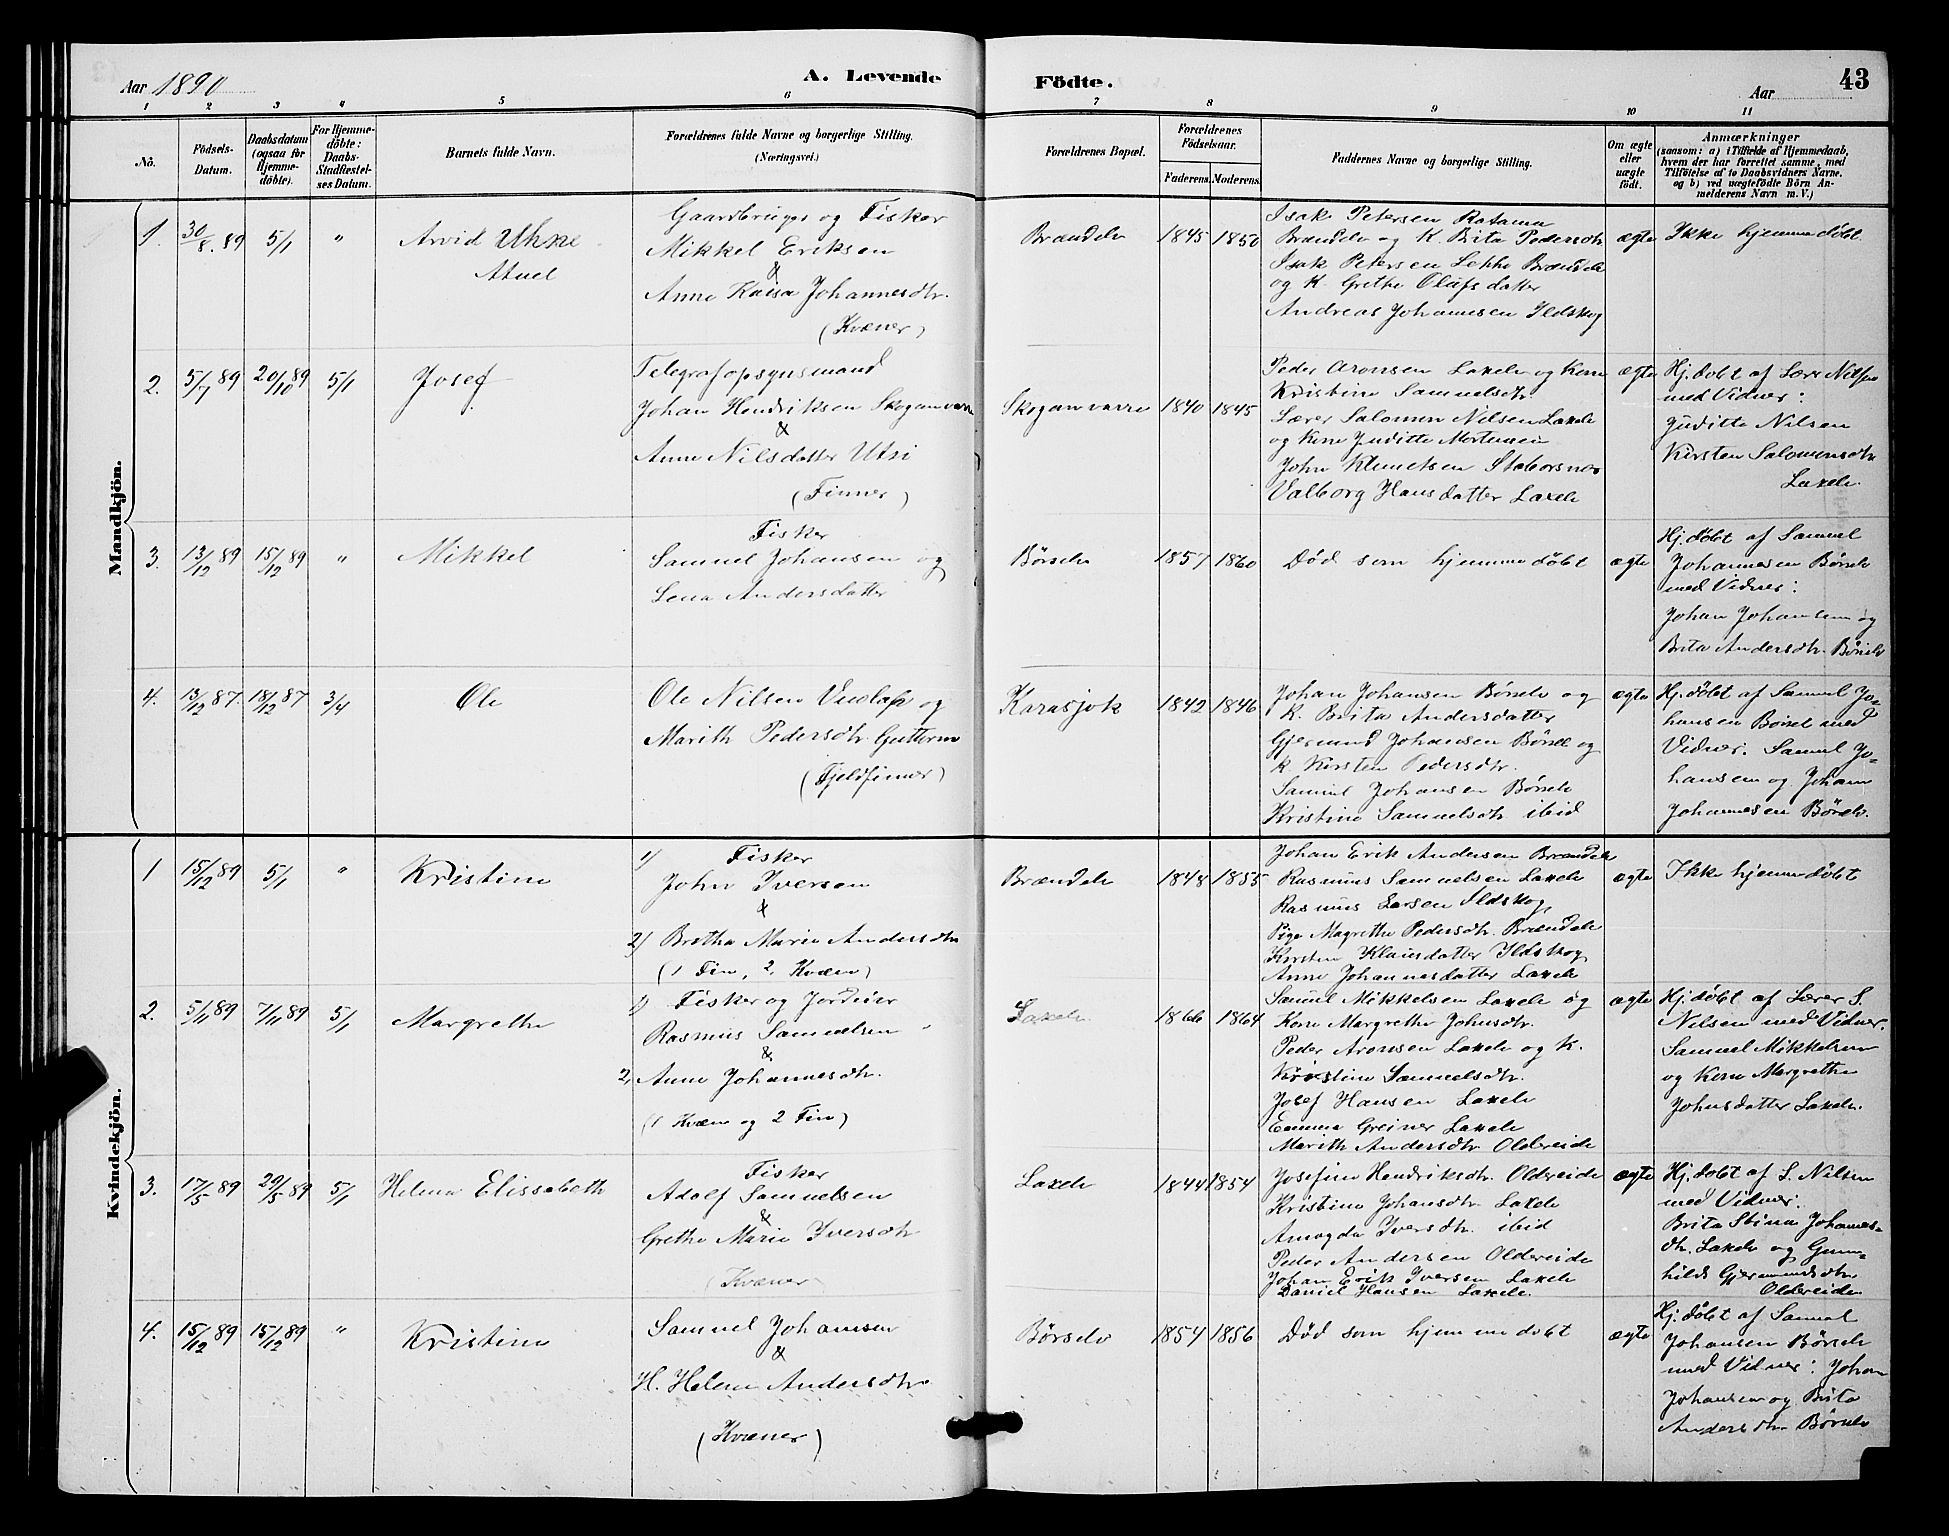 Aar 1890
A. Levende
Födte.
43
Aar
1 2 3 4 5 6 7 8 9 10 11
No.
Födsels-
Datum.
Daabsdatum
(ogsaa for
Hjemme-
döbte).
For Hjemme-
döbte:
Daabs-
Stadfæstel-
ses Datum.
Barnets fulde Navn.
Forældrenes fulde Navne og borgerlige Stilling.
(Næringsvei.)
Forældrenes Bopæl.
Forældrenes
Födselsaar.
Faderens. Moderens.
Faddernes Navne og borgerlige Stilling.
Om ægte
eller
uægte
födt.
Anmærkninger
(saasom: a) i Tilfælde af Hjemmedaab,
hvem der har forrettet samme, med
Tilföielse af to Daabsvidners Navne,
og b) ved uægtefödte Börn An-
melderens Navn m. V.)
Mandkjön.
1. 30/8. 89 5/1 "
Arvid Uhke
Gaardbruger og Fisker
Mikkel Eriksen
&
Anne Kaisa Johannesdtr.
(Kvæner)
Brændelv 1845 1850
Isak Petersen Ratama
Brændelv og K. Brita Pedersdtr.
Isak Petersen Brændelv
og K. Grethe Olafsdatter
Andreas Johannesen Ildskog
ægte
Ikke hjemmedøbt
2. 5/7 89 20/10 89 5/1
Josef
Telegrafopsynsmand
Johan Hendriksen Skoganvarre
&
Anne Nilsdatter Utsi
(Finner)
Skoganvarre 1840 1845
Peder Aronsen Laxelv og Kone
Kristine Samuelsdtr.
Lærer Salomon Nilsen Laxelv
og Kone Juditte Mortensen
John Klemetsen
Valborg Hansdatter Laxelv
ægte
Hj. døbt af Lærer Nilsen
med Vidner:
Juditte Nilsen
Kirsten Salomonsdtr.
Laxelv.
3. 13/12 89 15/12 89 "
Mikkel
Fisker
Samuel Johansen og
Lena Andersdatter
Børselv 1857 1860
Død som hjemmedøbt
ægte
Hj. døbt af Samuel
Johannesen Børselv
med Vidner:
Johan Johansen og
Brita Andersdtr. Børselv
4. 13/12 87. 18/12 87 3/4
Ole
Ole Nilsen og
Marith Pedersdtr. Guttorm
(Fjeldfinner)
Karasjok 1842 1846
Johan Johansen Børselv og
K. Brita Andersdatter
Gjermund Johansen Børselv og
K. Kirsten Pedersdtr.
Samuel Johansen Børselv
Kristine Samuelsdtr. ibid
ægte
Hj. døbt af Samuel Jo-
hansen Børselv med
Vidner. Samuel Jo-
hansen og Johan
Johannesen Børselv.
Kvindekjön.
1 15/12 89 5/1 "
Kristine
1) Fisker
John Iversen
&
2) Bretha Marie Andersdtr.
(1 Fin, 2, Kvæn)
Brændelv 1848 1855
Johan Erik Andersen Brændelv
Rasmus Samuelsen Laxelv
Rasmus Larsen Ildskog,
Pige Magrethe Pedersdtr. Brændelv
Kirsten Klausdatter Ildskog
Anne Johannesdatter Laxelv
ægte
Ikke hjemmedøbt
2. 5/11 89 7/11 89 5/1
Margrethe
1) Fisker og Jordeier
Rasmus Samuelsen
&
2, Anne Johannesdtr.
(1 Kvæn og 2 Fin)
Laxelv 1866 1864
Samuel Mikkelsen Laxelv og
Kone Margrethe Johnsdtr.
Peder Aronsen Laxelv og K.
Kristine Samuelsdtr.
Josef Hansen Laxelv
Emma Greiner Laxelv
Marith Andersdtr. Oldereide
ægte
Hj. døbt af Lærer S.
Nilsen med Vidner.
Samuel Mikkelsen
og Kone Margrethe
Johnsdatter Laxelv.
3. 17/5 89 29/5 89 5/1
Helena Elissabeth
Fisker
Adolf Samuelsen
&
Grethe Marie Iversdtr
(Kvæner)
Laxelv 1844 1854
Josefine Hendriksdtr. Oldereide
Kristine Johansdtr. Laxelv
Amagda Iversdtr. ibid
Peder Andersen Oldereide
Johan Erik Iversen Laxelv
Daniel Hansen Laxelv.
ægte
Hj. døbt af S. Nilsen
med Vidner:
Brita Stina Johannes-
dtr. Laxelv og Gun-
hild Gjermundsdtr.
Oldereide
4. 15/12 89 15/12 89 "
Kristine
Samuel Johansen
&
H. Helena Andersdtr.
(Kvæner)
Børselv 1854 1856
Død som hjemmedøbt
ægte
Hj. døbt af Samuel
Johansen Børselv
med Vidner: Johan
Johansen og Brita
Andersdtr. Børselv